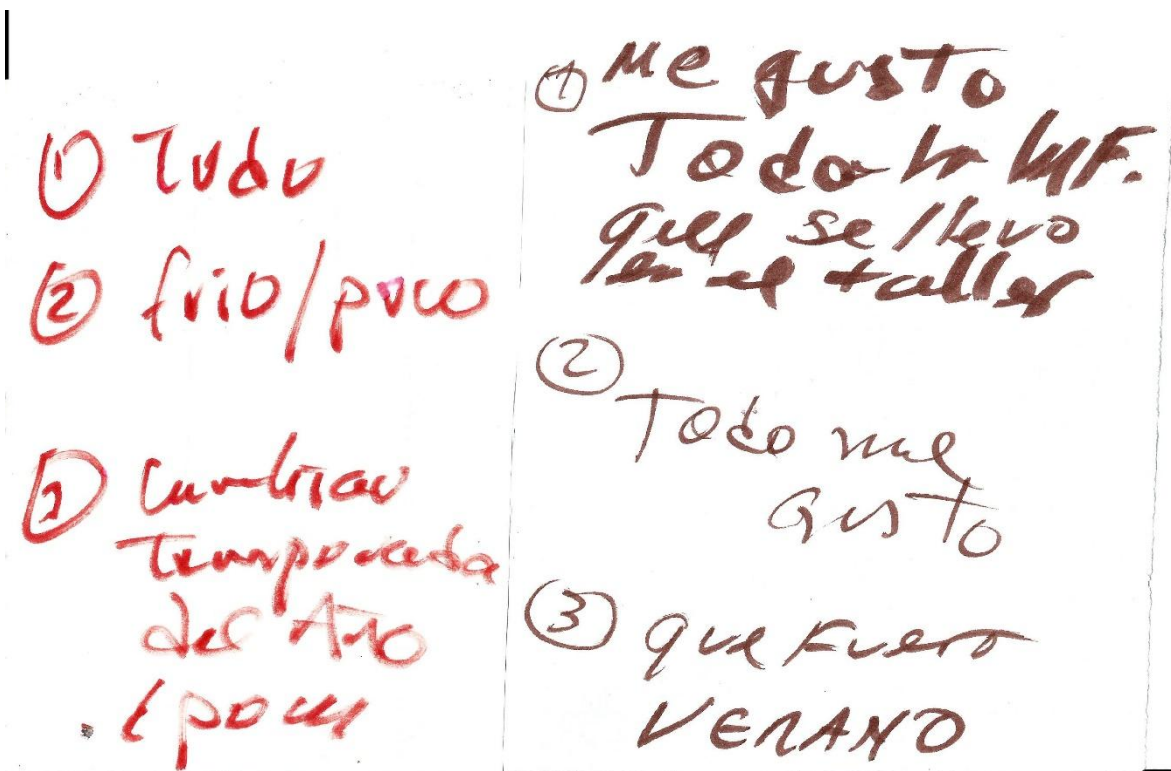 ① Todo
② frio/poco
③ Cambiar
Temporada
del Año
Epoca
① Me gusto
Todo la INF.
que se llevo
en el taller
②
Todo me
Gusto
③ que Fuera
VERANO